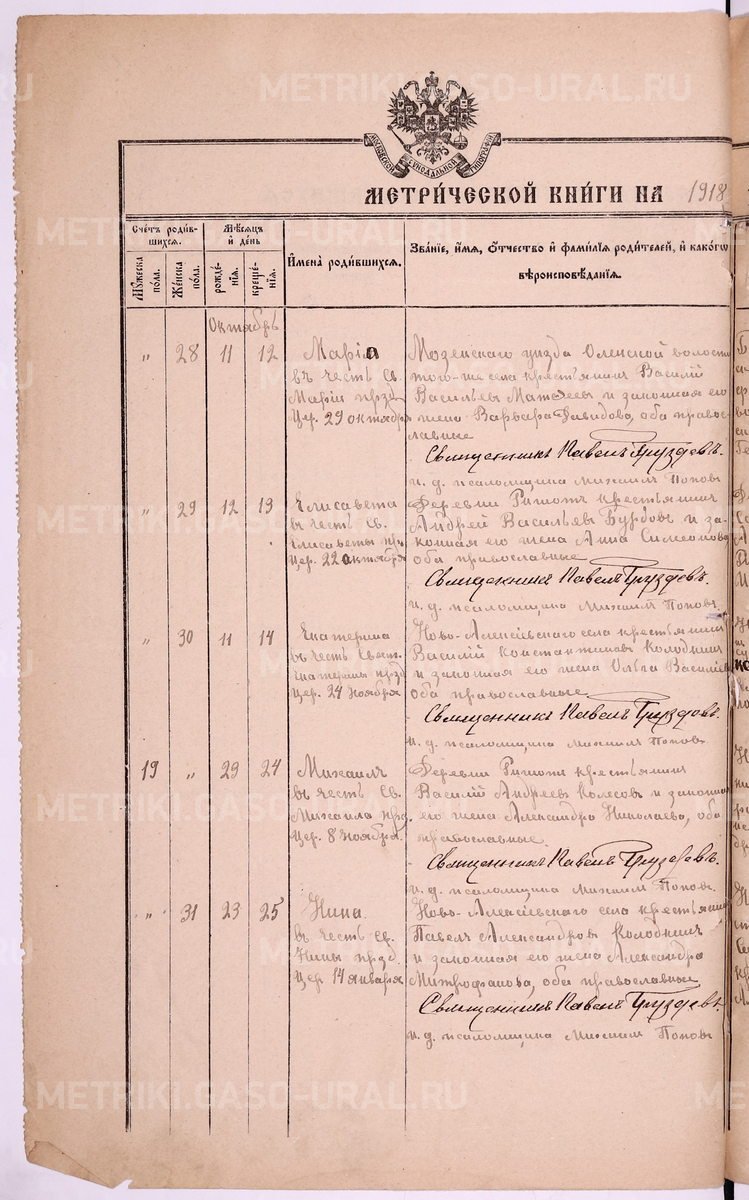 METRIKI.GASO-URAL.RU
МОСКОВСКОЙ СѴНОДАЛЬНОЙ ТИПОГРАФІИ
МЕТРИ́ЧЕСКОЙ КНИ́ГИ НА 1918
Сче́тъ роди́вшихся.
Мѣ́сяцъ и́ де́нь
И҆мена̀ роди́вшихся.
Зва́нїе, и҆́мя, ѻ҆́тчество и҆ фами́лїя роди́телей, и҆ како́гѡ вѣроисповѣ́данїя.
Мꙋ́жеска по́ла.
Же́нска по́ла.
рожде́нїя.
креще́нїя.
Октябрь
„ 28 11 12
Марія
въ честь Св.
Маріи прзд.
Цер. 29 октября
уѣзда волости
того-же села крестьянинъ Василій
Васильевъ и законная его
жена Варвара Давидова, оба православные
Священникъ Павелъ Груздевъ.
и. д. псаломщика Михаилъ Поповъ
„ 29 12 13
Елисавета
въ честь Св.
Елисаветы пр.
Цер. 22 октября
Деревни крестьянинъ
Андрей Васильевъ и законная его жена Анна Симеонова
оба православные
Священникъ Павелъ Груздевъ.
и. д. псаломщика Михаилъ Поповъ
„ 30 11 14
Екатерина
въ честь Свят.
Екатерины прзд.
Цер. 24 ноября
Ново-Алексѣевскаго села крестьянинъ
Василій Константиновъ Колодкинъ
и законная его жена Ольга
оба православные
Священникъ Павелъ Груздевъ.
и. д. псаломщика Михаилъ Поповъ
19 „ 23 24
Михаилъ
въ честь Св.
Михаила прзд.
Цер. 8 ноября.
Деревни крестьянинъ
Василій Андреевъ Колесовъ и законная
его жена Александра Николаева, оба
православные
Священникъ Павелъ Груздевъ.
и. д. псаломщика Михаилъ Поповъ
„ 31 23 25
Нина
въ честь Св.
Нины прзд.
Цер 14 января
Ново-Алексѣевскаго села крестьянинъ
Павелъ Александровъ Колодкинъ
и законная его жена Александра
Митрофанова, оба православные
Священникъ Павелъ Груздевъ.
и. д. псаломщика Михаилъ Поповъ